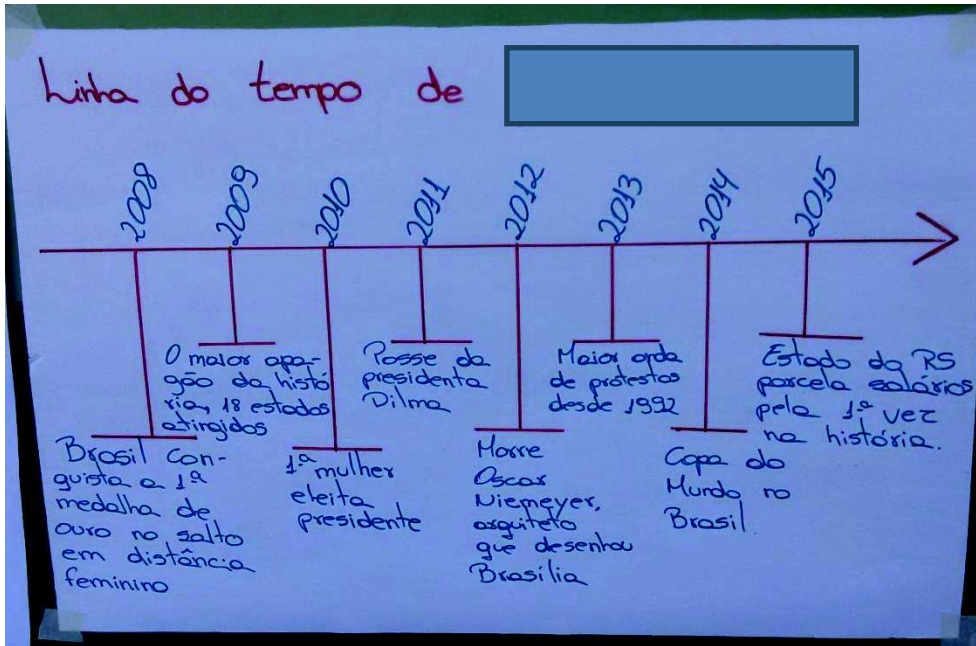 Linha do tempo de
2008
2009
2010
2011
2012
2013
2014
2015
Brasil con-
quista a 1ª
medalha de
ouro no salto
em distância
feminino
O maior apa-
gão da histó
ria, 18 estados
atingidos
1ª mulher
eleita
presidente
Posse da
presidenta
Dilma
Morre
Oscar
Niemeyer,
arquiteto
que desenhou
Brasília
Maior onda
de protestos
desde 1992
Copa do
Mundo no
Brasil.
Estado do RS
parcela salários
pela 1ª vez
na história.